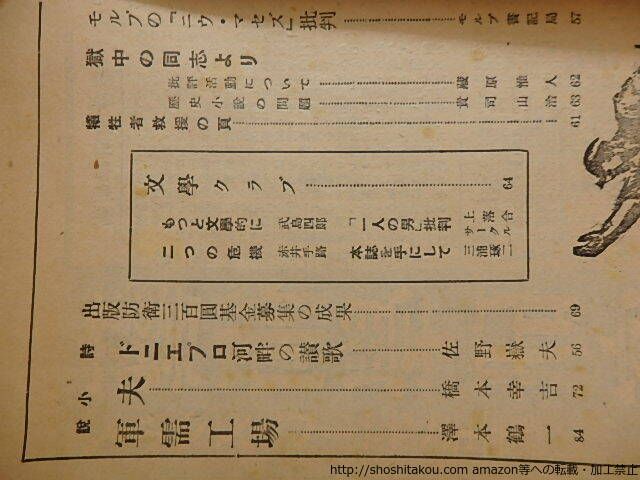 モルプの「ニウ・マセズ」批判……モルプ書記局 57
獄中の同志より
批評活動について……藏原惟人 62
歴史小説の問題……貴司山治 63
犠牲者救援の頁……61
文學クラブ……64
もっと文學的に 武島四郎
「一人の男」批判 上落合サークル
二つの危機 赤井手路
本誌を手にして 三浦球二
出版防衛三百圓基金募集の成果……69
詩 ドニエプロ河畔の讃歌……佐野嶽夫 56
小說
夫……橋本幸吉 72
軍需工場……澤本鶴一 84
http://shoshitakou.com amazon等への転載・加工禁止